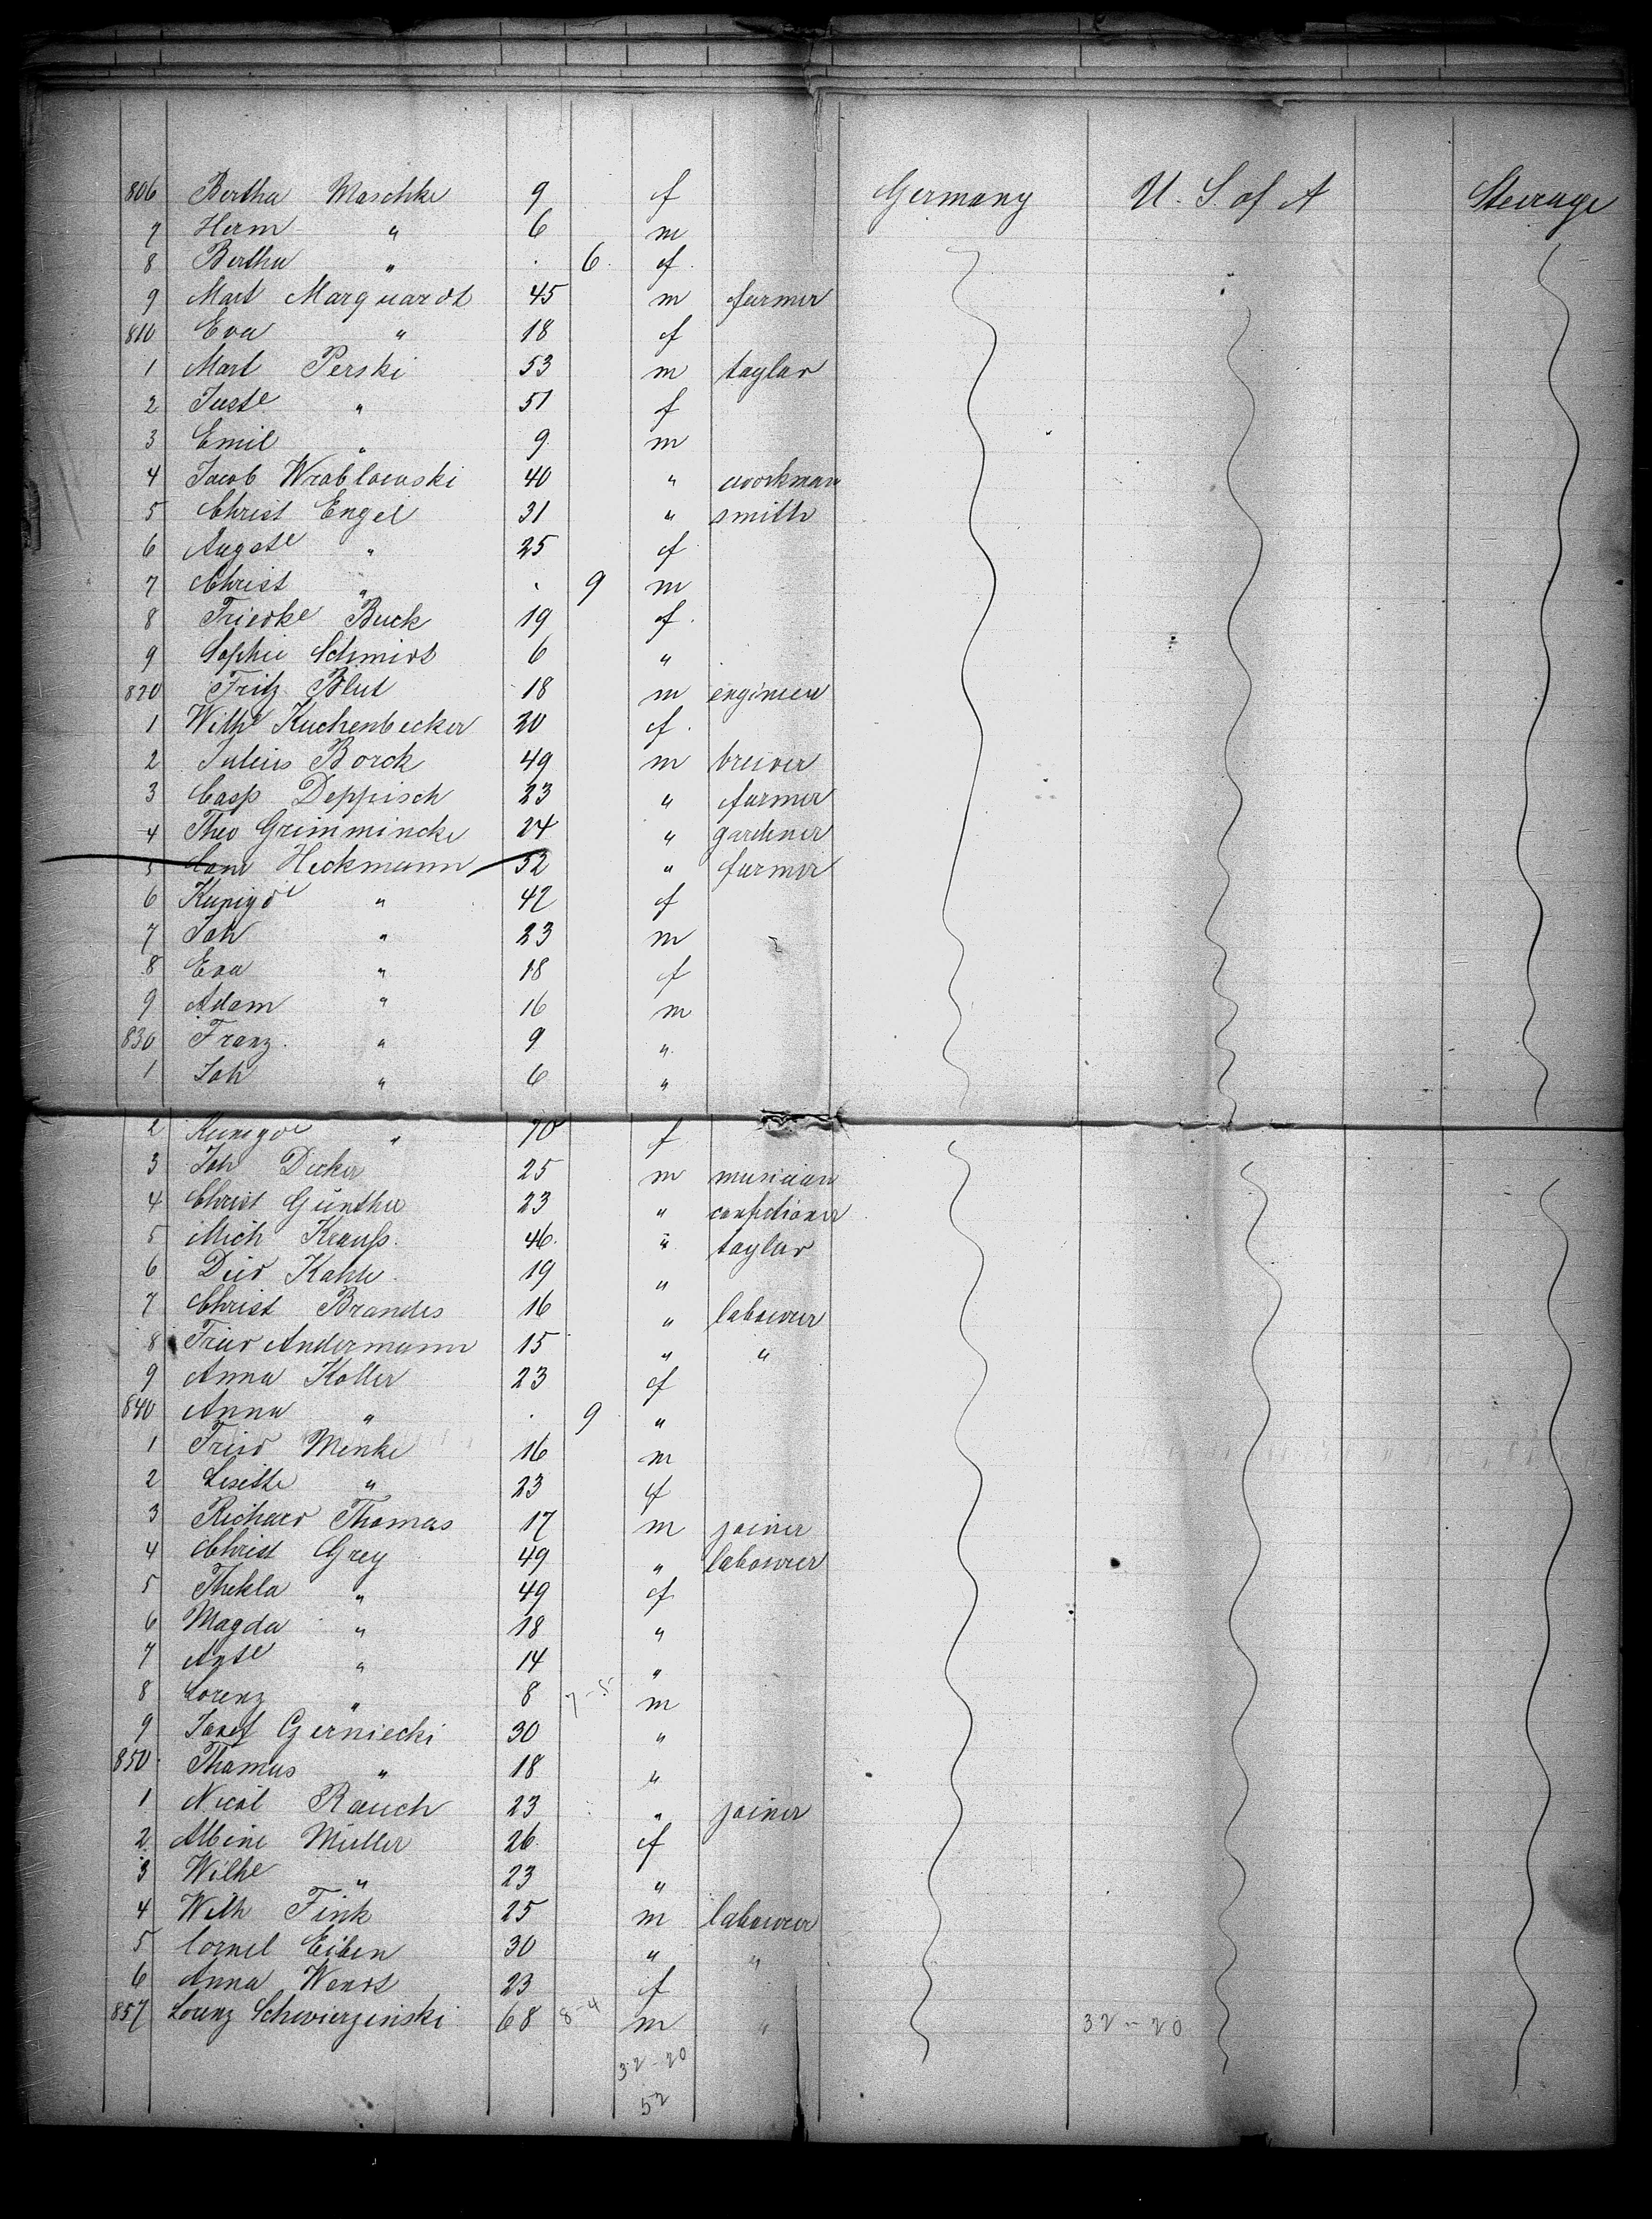 806 Bertha Maschke 9 f Germany U. S. of A Steerage
7 Herm " 6 m
8 Bertha " . 6 f
9 Mart Marquardt 45 m farmer
810 Eva " 18 f
1 Mart Perski 53 m taylor
2 Juste " 51 f
3 Emil " 9 m
4 Jacob Wroblowski 40 " workman
5 Christ Engel 31 " smith
6 Augste " 25 f
7 Christ " . 9 m
8 Friedke Buck 19 f
9 Sophie Schmidt 6 "
820 Fritz Blut 18 m engineer
1 Withe Kuchenbecker 20 f
2 Julius Borck 49 m brewer
3 Casp Deppisch 23 " farmer
4 Theo Grimmincke 24 " gardener
5 Heckmann 52 " farmer
6 Kunigde " 42 f
7 Joh " 23 m
8 Eva " 18 f
9 Adam " 16 m
830 Franz " 9 "
1 Joh " 6 "
2 Kunigde " 70 f
3 Joh Decker 25 m musician
4 Christ Günther 23 " confectioner
5 Mich Krauß 46 " taylor
6 Died Kahle 19 "
7 Christ Brandes 16 " labourer
8 Fried Andermann 15 " "
9 Anna Koller 23 f
840 Anna " . 9 "
1 Fried Menke 16 m
2 Lisette " 23 f
3 Richard Thomas 17 m joiner
4 Christ Grey 49 " labourer
5 Thekla " 49 f
6 Magda " 18 "
7 " 14 "
8 Lorenz " 8 7-5 m
9 Josef Czerniecki 30 "
850 Thomas " 18 "
1 Nicol Rauch 23 " joiner
2 Albine Müller 26 f
3 Wilhe " 23 "
4 Wilh Fink 25 m labourer
5 Cornel Eiben 30 " "
6 Anna Wendt 23 f
857 Lorenz Schwierzinski 68 8-4 m " 32-20
32-20
52